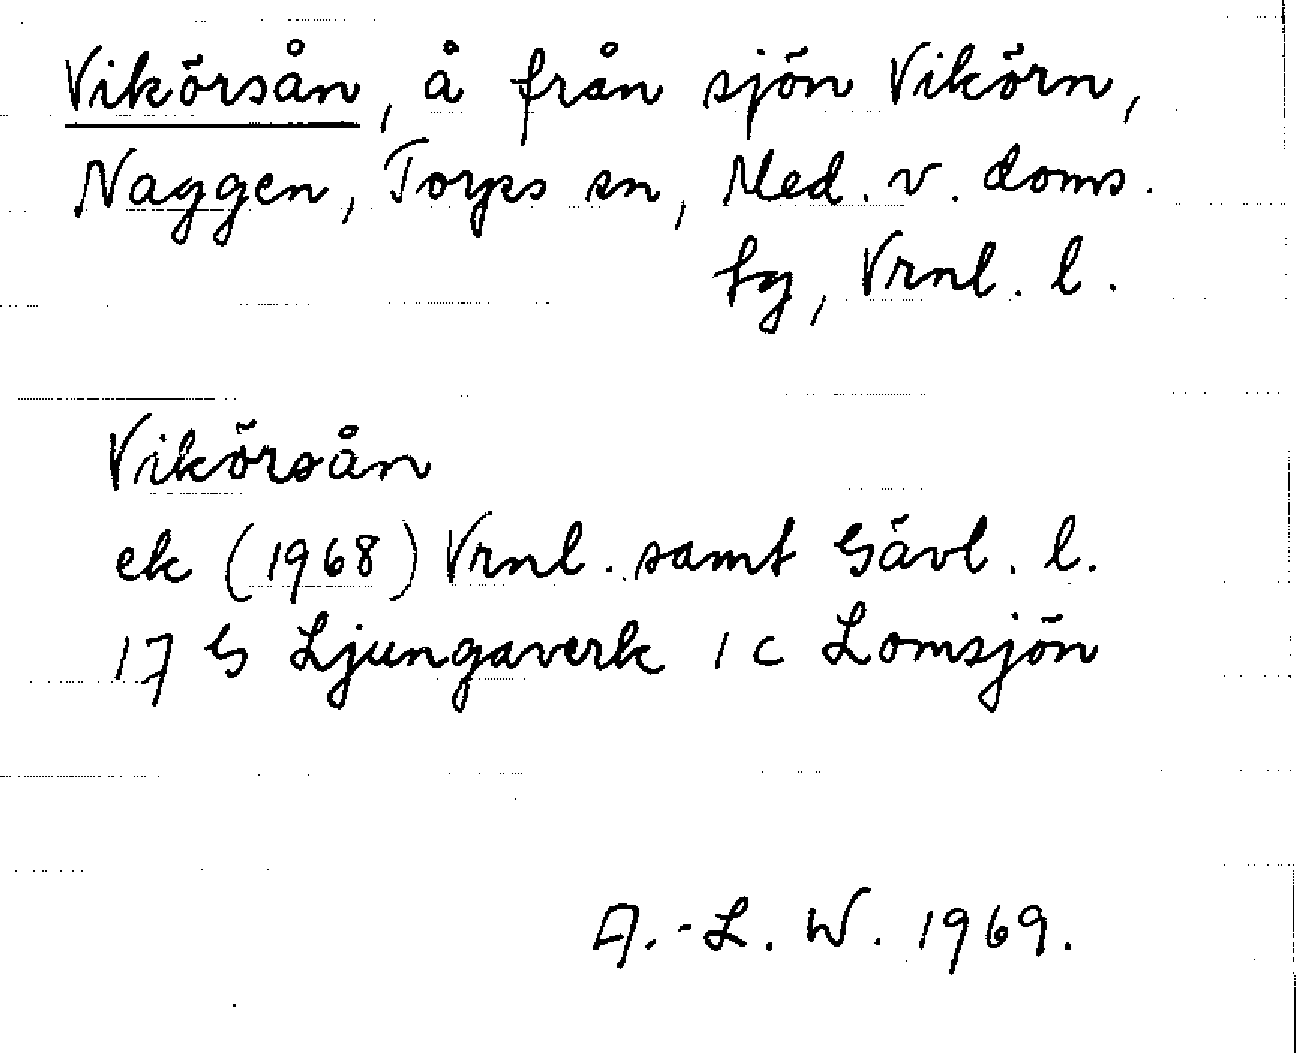 Vikörsån, å från sjön Vikörn,
Naggen, Torps sn, Med. v. doms.
fg, Vrnl. l.
Vikörsån
ek (1968) Vrnl. samt Gävl. l.
17 G Ljungaverk 1 c Lomsjön
A.-L. W. 1969.